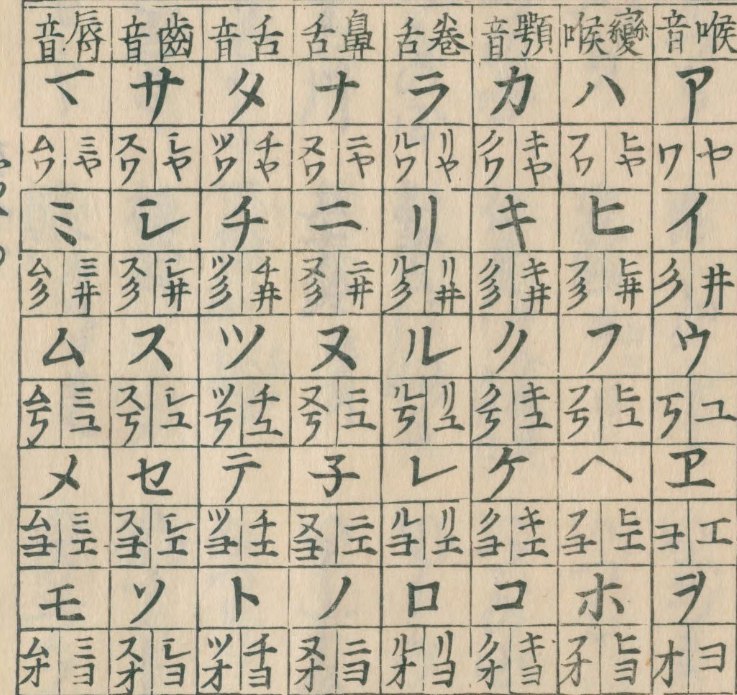 喉音 變喉 顎音 卷舌 鼻舌 舌音 齒音 脣音
ア ハ カ ラ ナ タ サ マ
ヤ ワ ヒヤ フワ キヤ クワ リヤ ルワ ニヤ ヌワ チヤ ツワ シヤ スワ ミヤ ムワ
イ ヒ キ リ ニ チ シ ミ
井 彡 ヒ井 フ彡 キ井 ク彡 リ井 ル彡 ニ井 ヌ彡 チ井 ツ彡 シ井 ス彡 ミ井 ム彡
ウ フ ク ル ヌ ツ ス ム
ユ 丂 ヒユ フ丂 キユ ク丂 リユ ル丂 ニユ ヌ丂 チユ ツ丂 シユ ス丂 ミユ ム丂
ヱ ヘ ケ レ 子 テ セ メ
エ ヨ ヒエ フヨ キエ クヨ リエ ルヨ ニエ ヌヨ チエ ツヨ シエ スヨ ミエ ムヨ
ヲ ホ コ ロ ノ ト ソ モ
ヨ オ ヒヨ フオ キヨ クオ リヨ ルオ ニヨ ヌオ チヨ ツオ シヨ スオ ミヨ ムオ